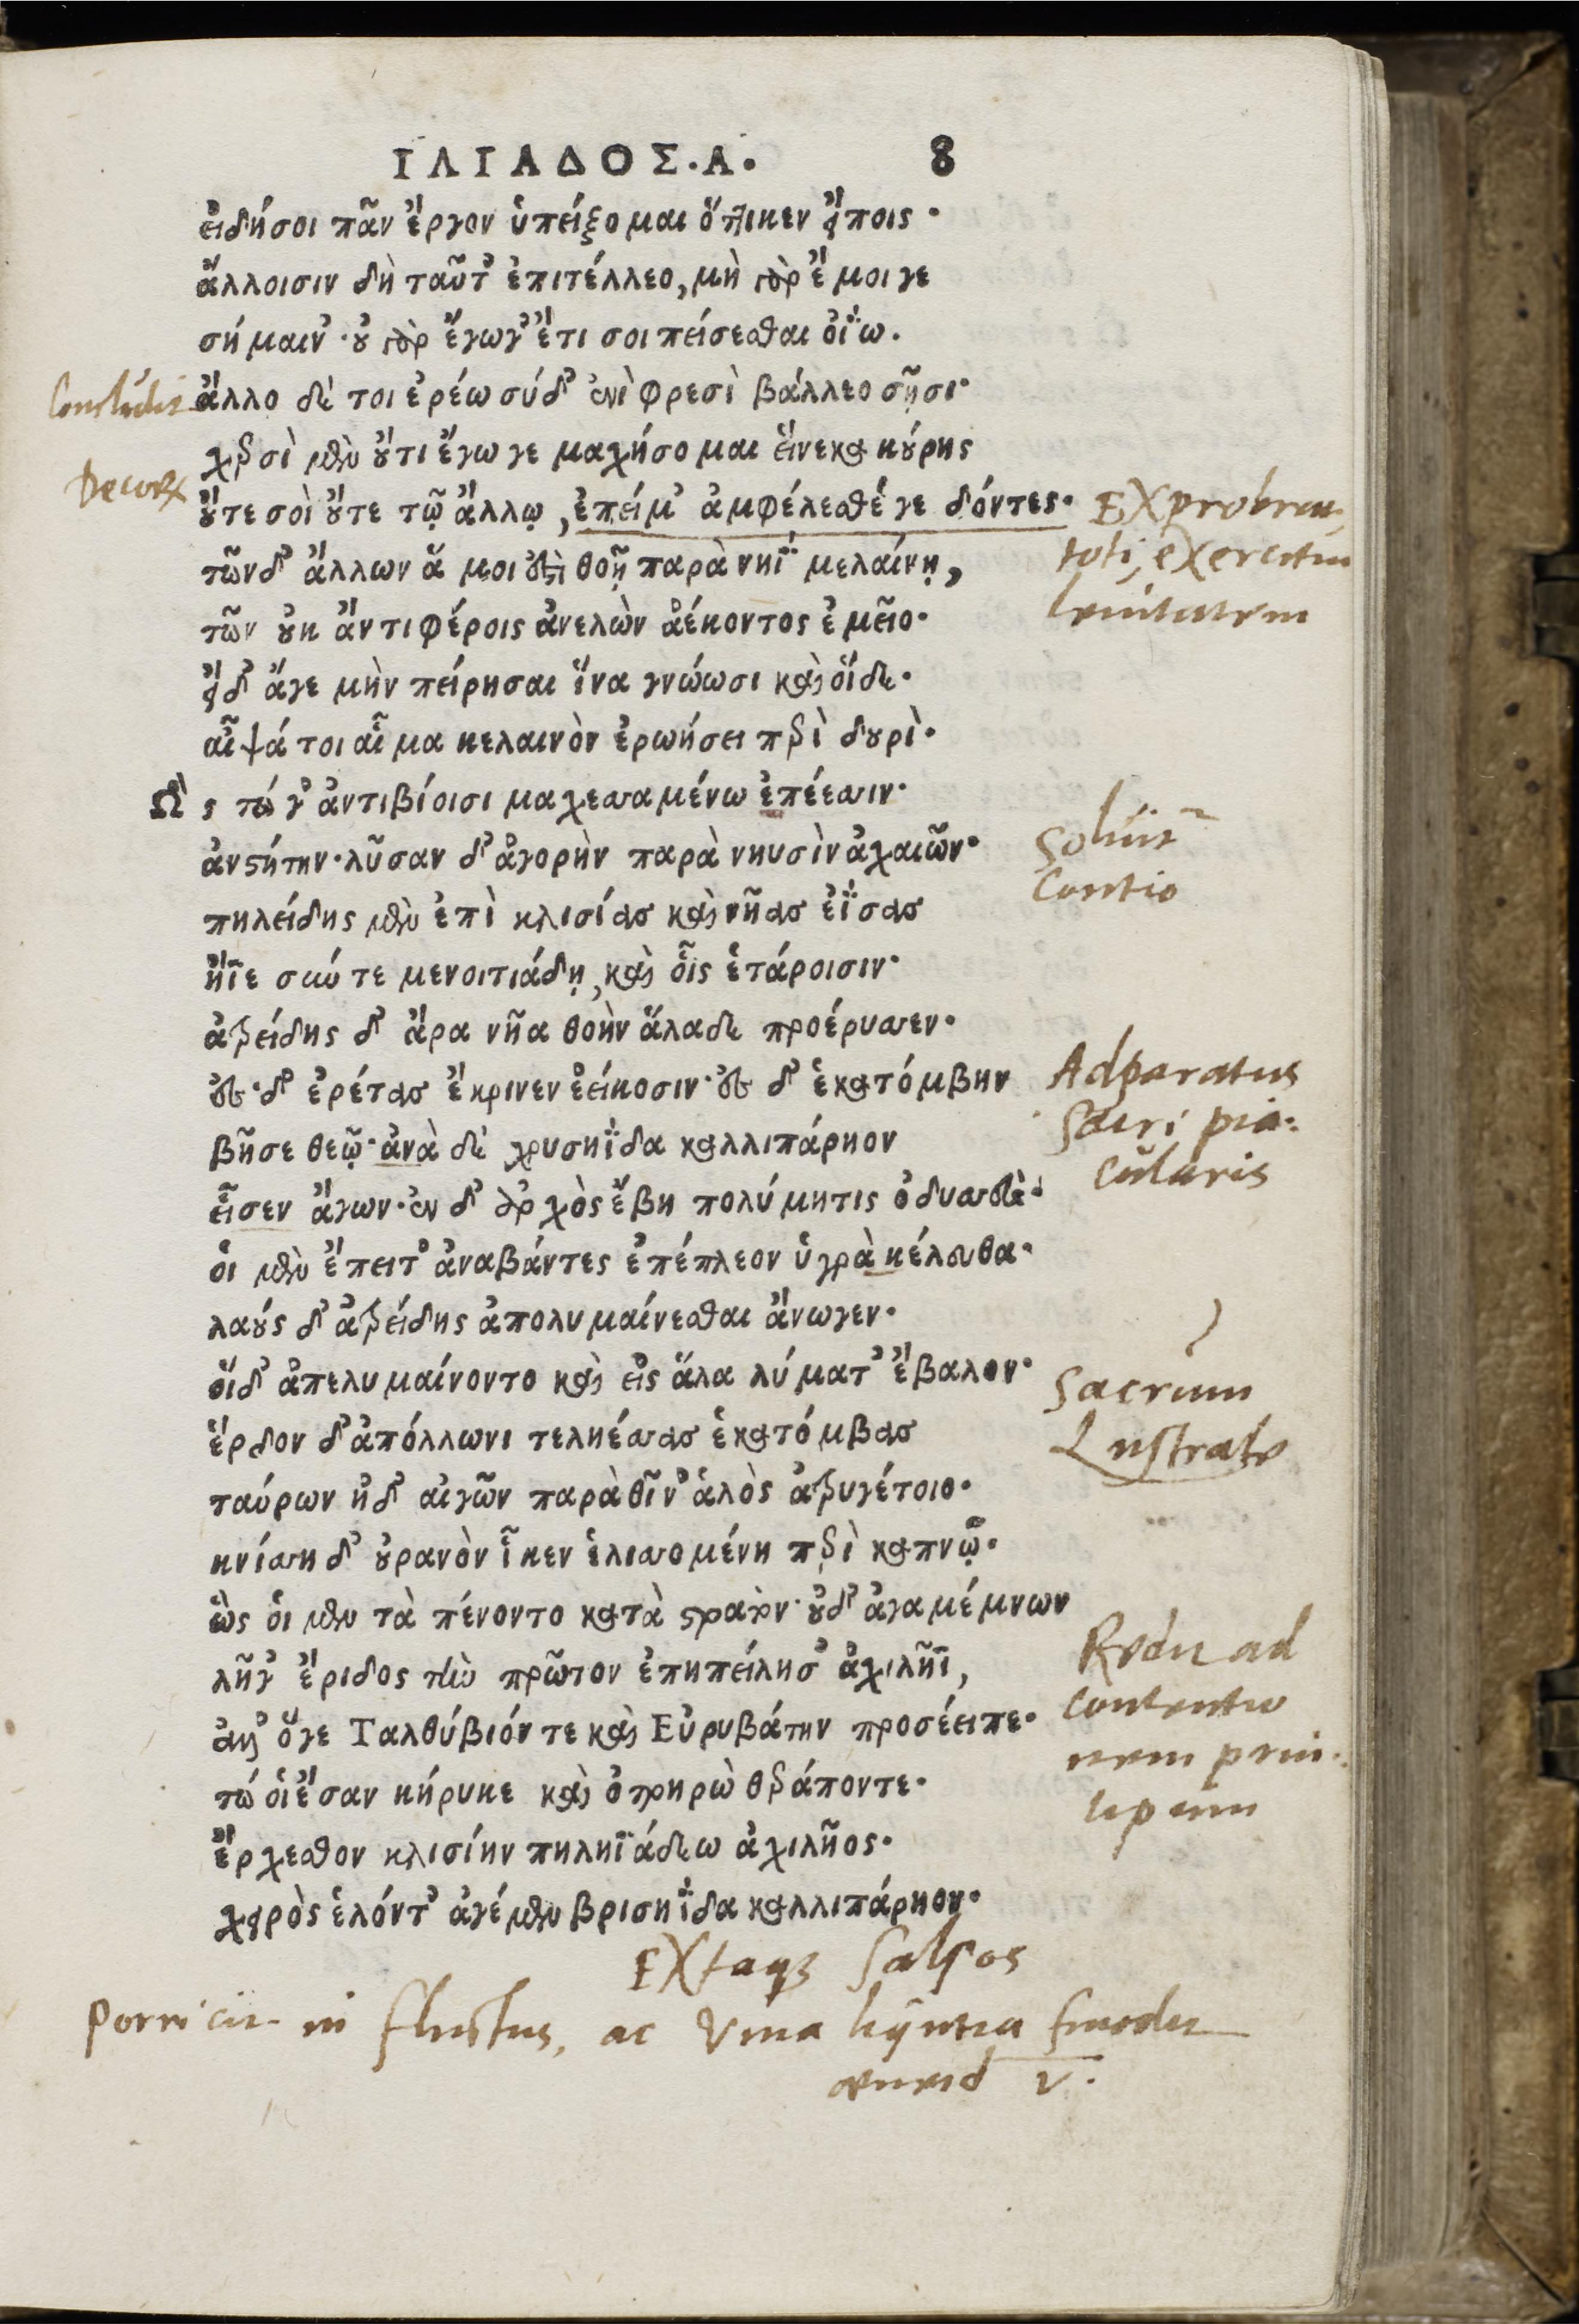 ΙΛΙΑΔΟΣ.Α. 8
εἰδήσοι πᾶν ἔργον ὑπείξομαι ὅττικεν εἴποις·
ἄλλοισιν δὴ ταῦτ' ἐπιτέλλεο, μὴ γὰρ ἔμοιγε
σήμαιν'· οὐ γὰρ ἔγωγ' ἔτι σοι πείσεσθαι ὀΐω.
Concludit
ἄλλο δέ τοι ἐρέω σύδ' ἐνὶ φρεσὶ βάλλεο σῇσι·
χερσὶ μὲν οὔτι ἔγωγε μαχήσομαι εἵνεκα κούρης
οὔτε σοὶ οὔτε τῷ ἄλλῳ, ἐπείμ' ἀμφέλεσθέ γε δόντες·
Exprobrat
toti, exercitui
lenitatem
τῶνδ' ἄλλων ἅ μοι ἐστὶ θοῇ παρὰ νηῒ μελαίνῃ,
τῶν οὐκ ἄντι φέροις ἀνελὼν ἀέκοντος ἐμεῖο·
εἰδ' ἄγε μὴν πείρησαι ἵνα γνώωσι καὶ οἵδε·
αἶψά τοι αἷμα κελαινὸν ἐρωήσει περὶ δουρὶ·
Ὣς τώ γ' ἀντιβίοισι μαχεσσαμένω ἐπέεσσιν·
ἀνστήτην· λῦσαν δ' ἀγορὴν παρὰ νηυσὶν ἀχαιῶν·
Soluit~
Contio
πηλείδης μὲν ἐπὶ κλισίας καὶ νῆας ἐΐσας
ἤϊε σύν τε μενοιτιάδῃ, καὶ οἷς ἑτάροισιν·
ἀτρείδης δ' ἄρα νῆα θοὴν ἅλαδε προέρυσσεν·
ἐς· δ' ἐρέτας ἔκρινεν ἐείκοσιν· ἐς δ' ἑκατόμβην
Adparatus
sacri pia-
cularis
βῆσε θεῷ· ἀνὰ δὲ χρυσηΐδα καλλιπάρηον
εἷσεν ἄγων· ἐν δ' ἀρχὸς ἔβη πολύμητις ὀδυσσεύς·
οἱ μὲν ἔπειτ' ἀναβάντες ἐπέπλεον ὑγρὰ κέλευθα·
λαούς δ' ἀτρείδης ἀπολυμαίνεσθαι ἄνωγεν·
οἵδ' ἀπελυμαίνοντο καὶ εἰς ἅλα λύματ' ἔβαλον·
Sacrum
Lustrale
ἕρδον δ' ἀπόλλωνι τεληέσσας ἑκατόμβας
ταύρων ἠδ' αἰγῶν παρὰ θῖν' ἁλὸς ἀτρυγέτοιο·
κνίσση δ' οὐρανὸν ἷκεν ἑλισσομένη περὶ καπνῷ·
ὣς οἱ μὲν τὰ πένοντο κατὰ στρατὸν· οὐδ' ἀγαμέμνων
λῆγ' ἔριδος τὴν πρῶτον ἐπηπείλησ' ἀχιλῆϊ,
Redit ad
contentio
nem prin-
cipum
ἀλλ' ὅγε Ταλθύβιόν τε καὶ Εὐρυβάτην προσέειπε·
τώ οἱ ἔσαν κήρυκε καὶ ὀτρηρὼ θεράποντε·
ἔρχεσθον κλισίην πηληϊάδεω ἀχιλῆος·
χειρὸς ἑλόντ' ἀγέμεν βρισηΐδα καλλιπάρηον·
Extaqꝫ salsos
Porriciit in fluctus, ac vina liquentia fundit